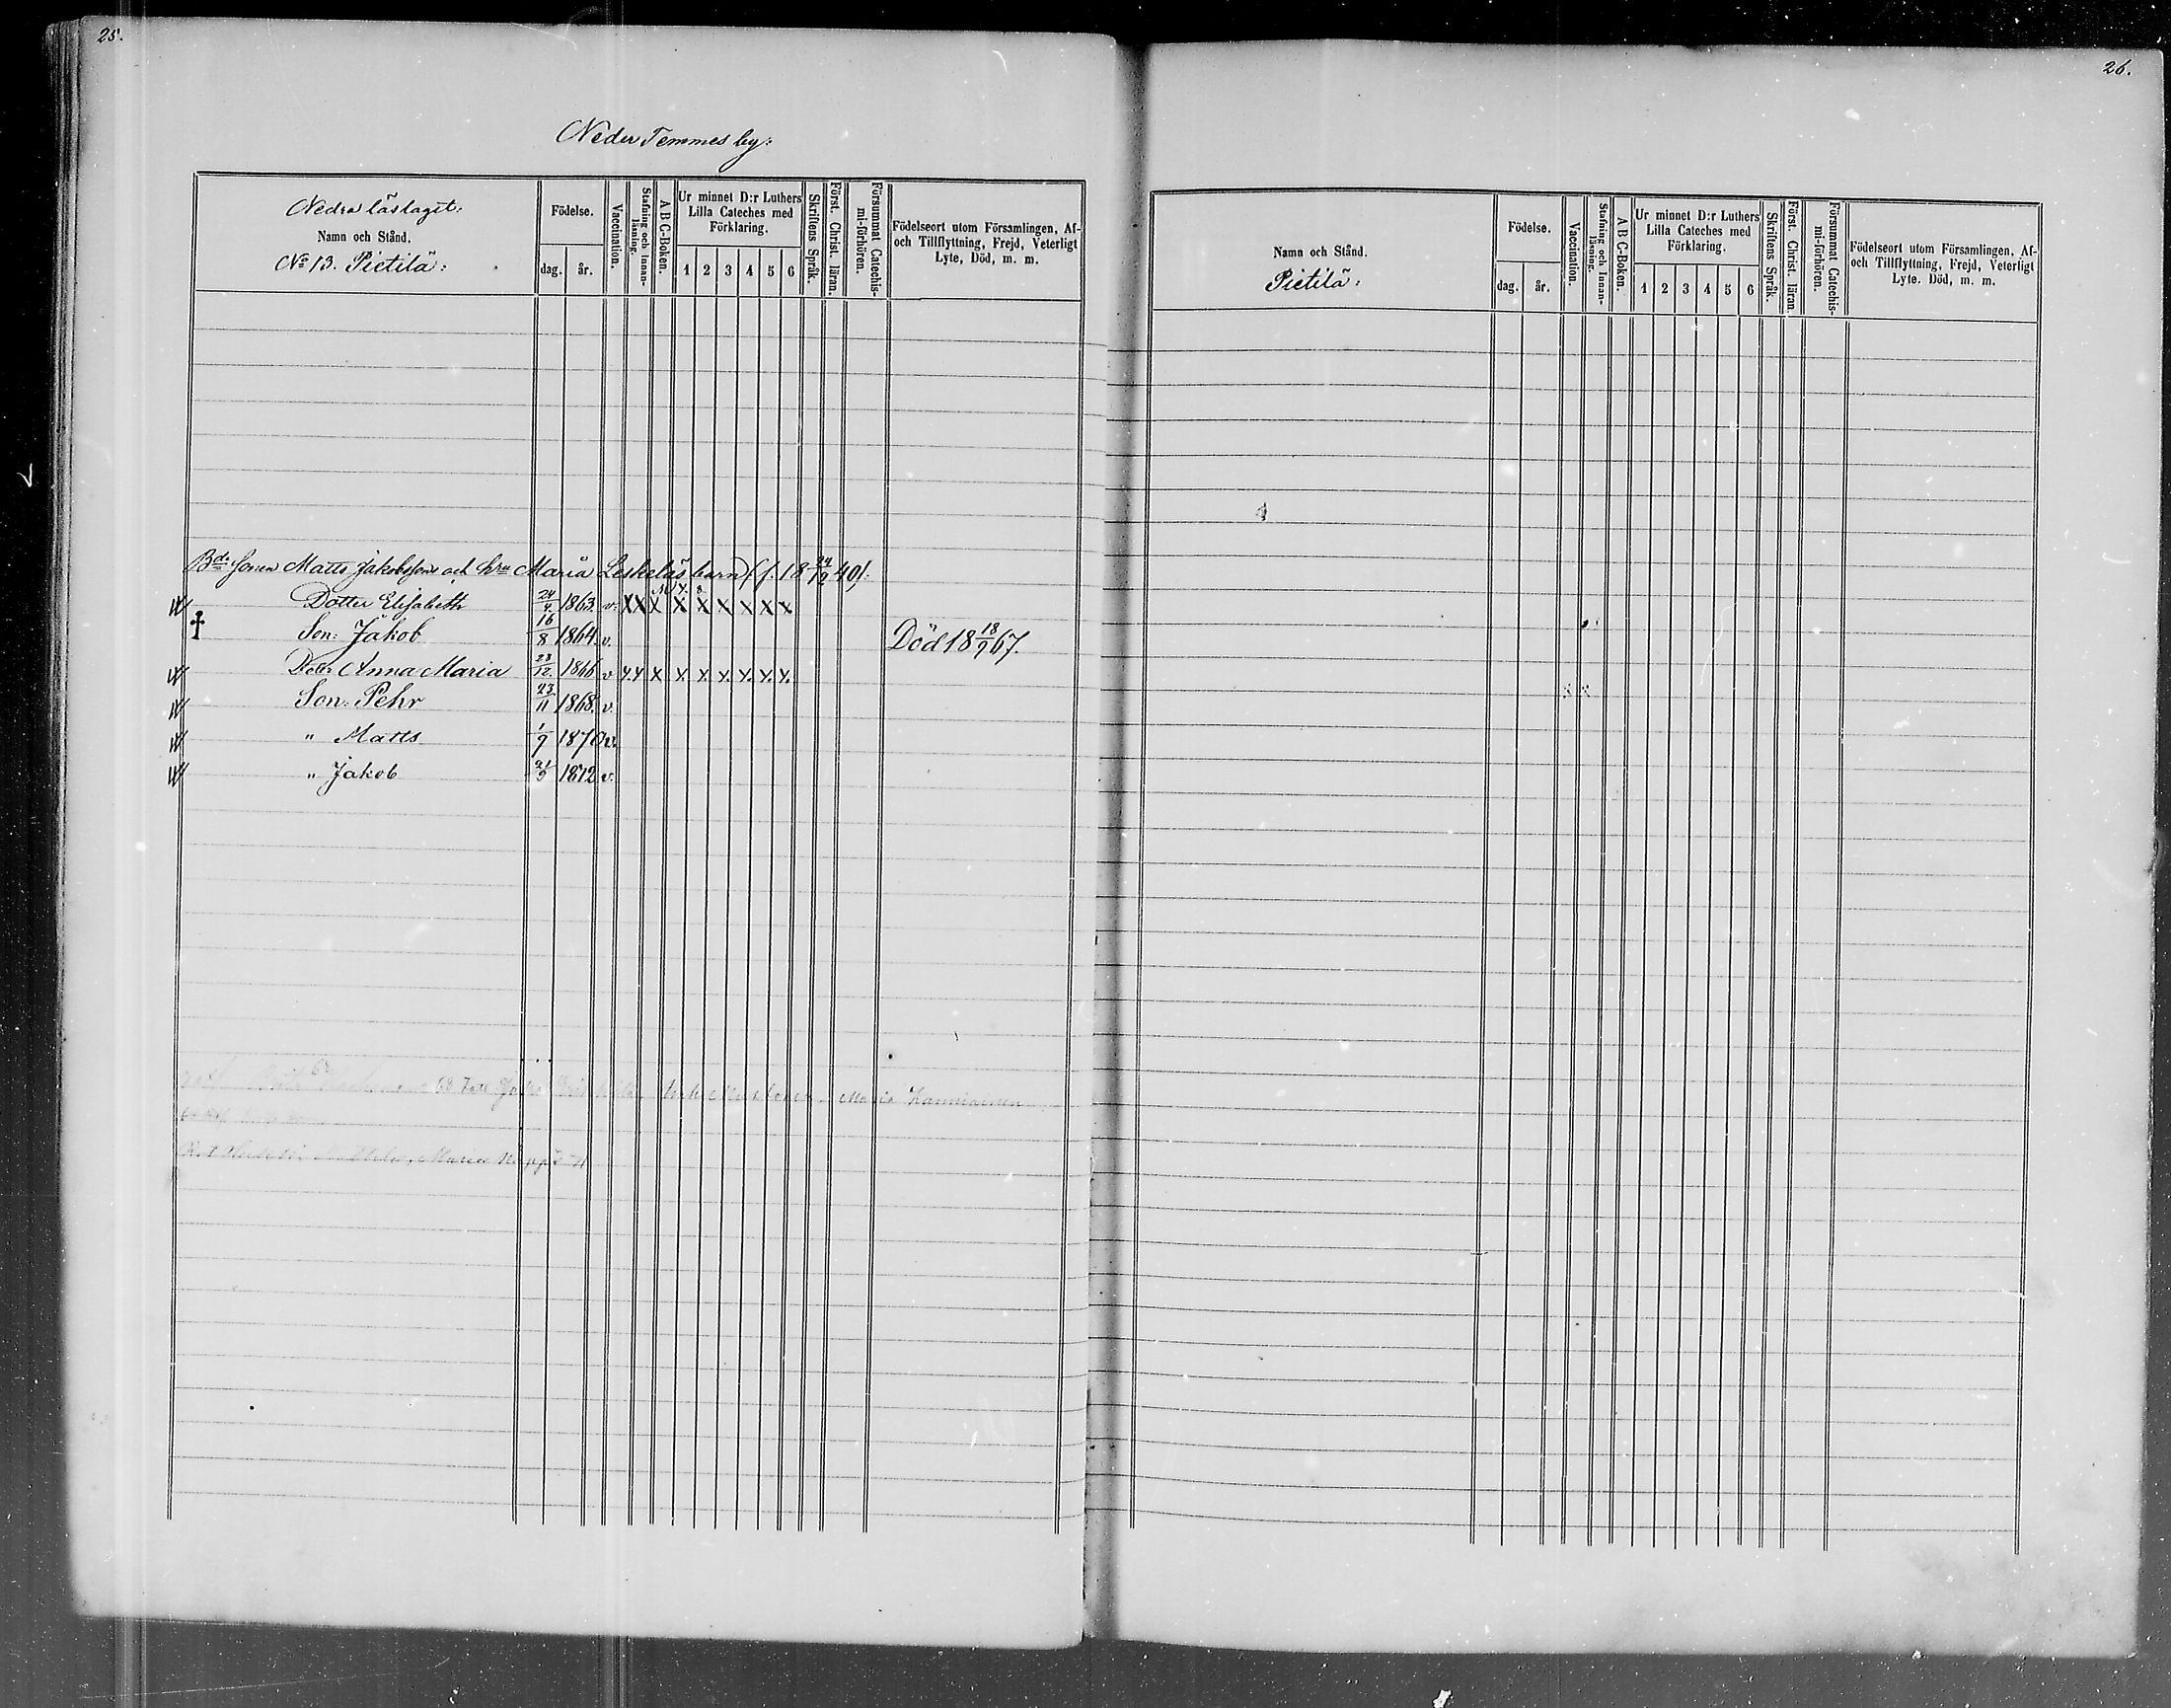 25.
Neder Temmes by:
Nedra läslaget:
Namn och Stånd.
No 13. Pietilä:
Födelse.
dag. år.
Vaccination.
Stafning och Innanläsning.
A B C-Boken.
Ur minnet D:r Luthers
Lilla Cateches med
Förklaring.
1 2 3 4 5 6
Skriftens Språk.
Först. Christ. läran.
Försummat Catechismi-förhören.
Födelseort utom Församlingen, Af-
och Tillflyttning, Frejd, Veterligt
Lyte, Död, m. m.
Bde Sonen Matts Jakobssons och hru Maria Leskeläs barn (f. 18 24/12 40):
Dotter Elisabeth 24/4. 1863. v. X X X X X X X X X
† Son: Jakob 16/8 1864. v. Död 18 18/9 67.
Dotr Anna Maria 23/12. 1866 v x x x x. x. x. x. x. x.
Son: Pehr 23/11 1868. v.
" Matts 1/9 1870 v.
" Jakob 21/5 1872 v.
Maria Kanniainen
Maria
26.
Namn och Stånd.
Pietilä:
Födelse.
dag. år.
Vaccination.
Stafning och Innanläsning.
A B C-Boken.
Ur minnet D:r Luthers
Lilla Cateches med
Förklaring.
1 2 3 4 5 6
Skriftens Språk.
Först. Christ. läran.
Försummat Catechismi-förhören.
Födelseort utom Församlingen, Af-
och Tillflyttning, Frejd, Veterligt
Lyte. Död, m. m.